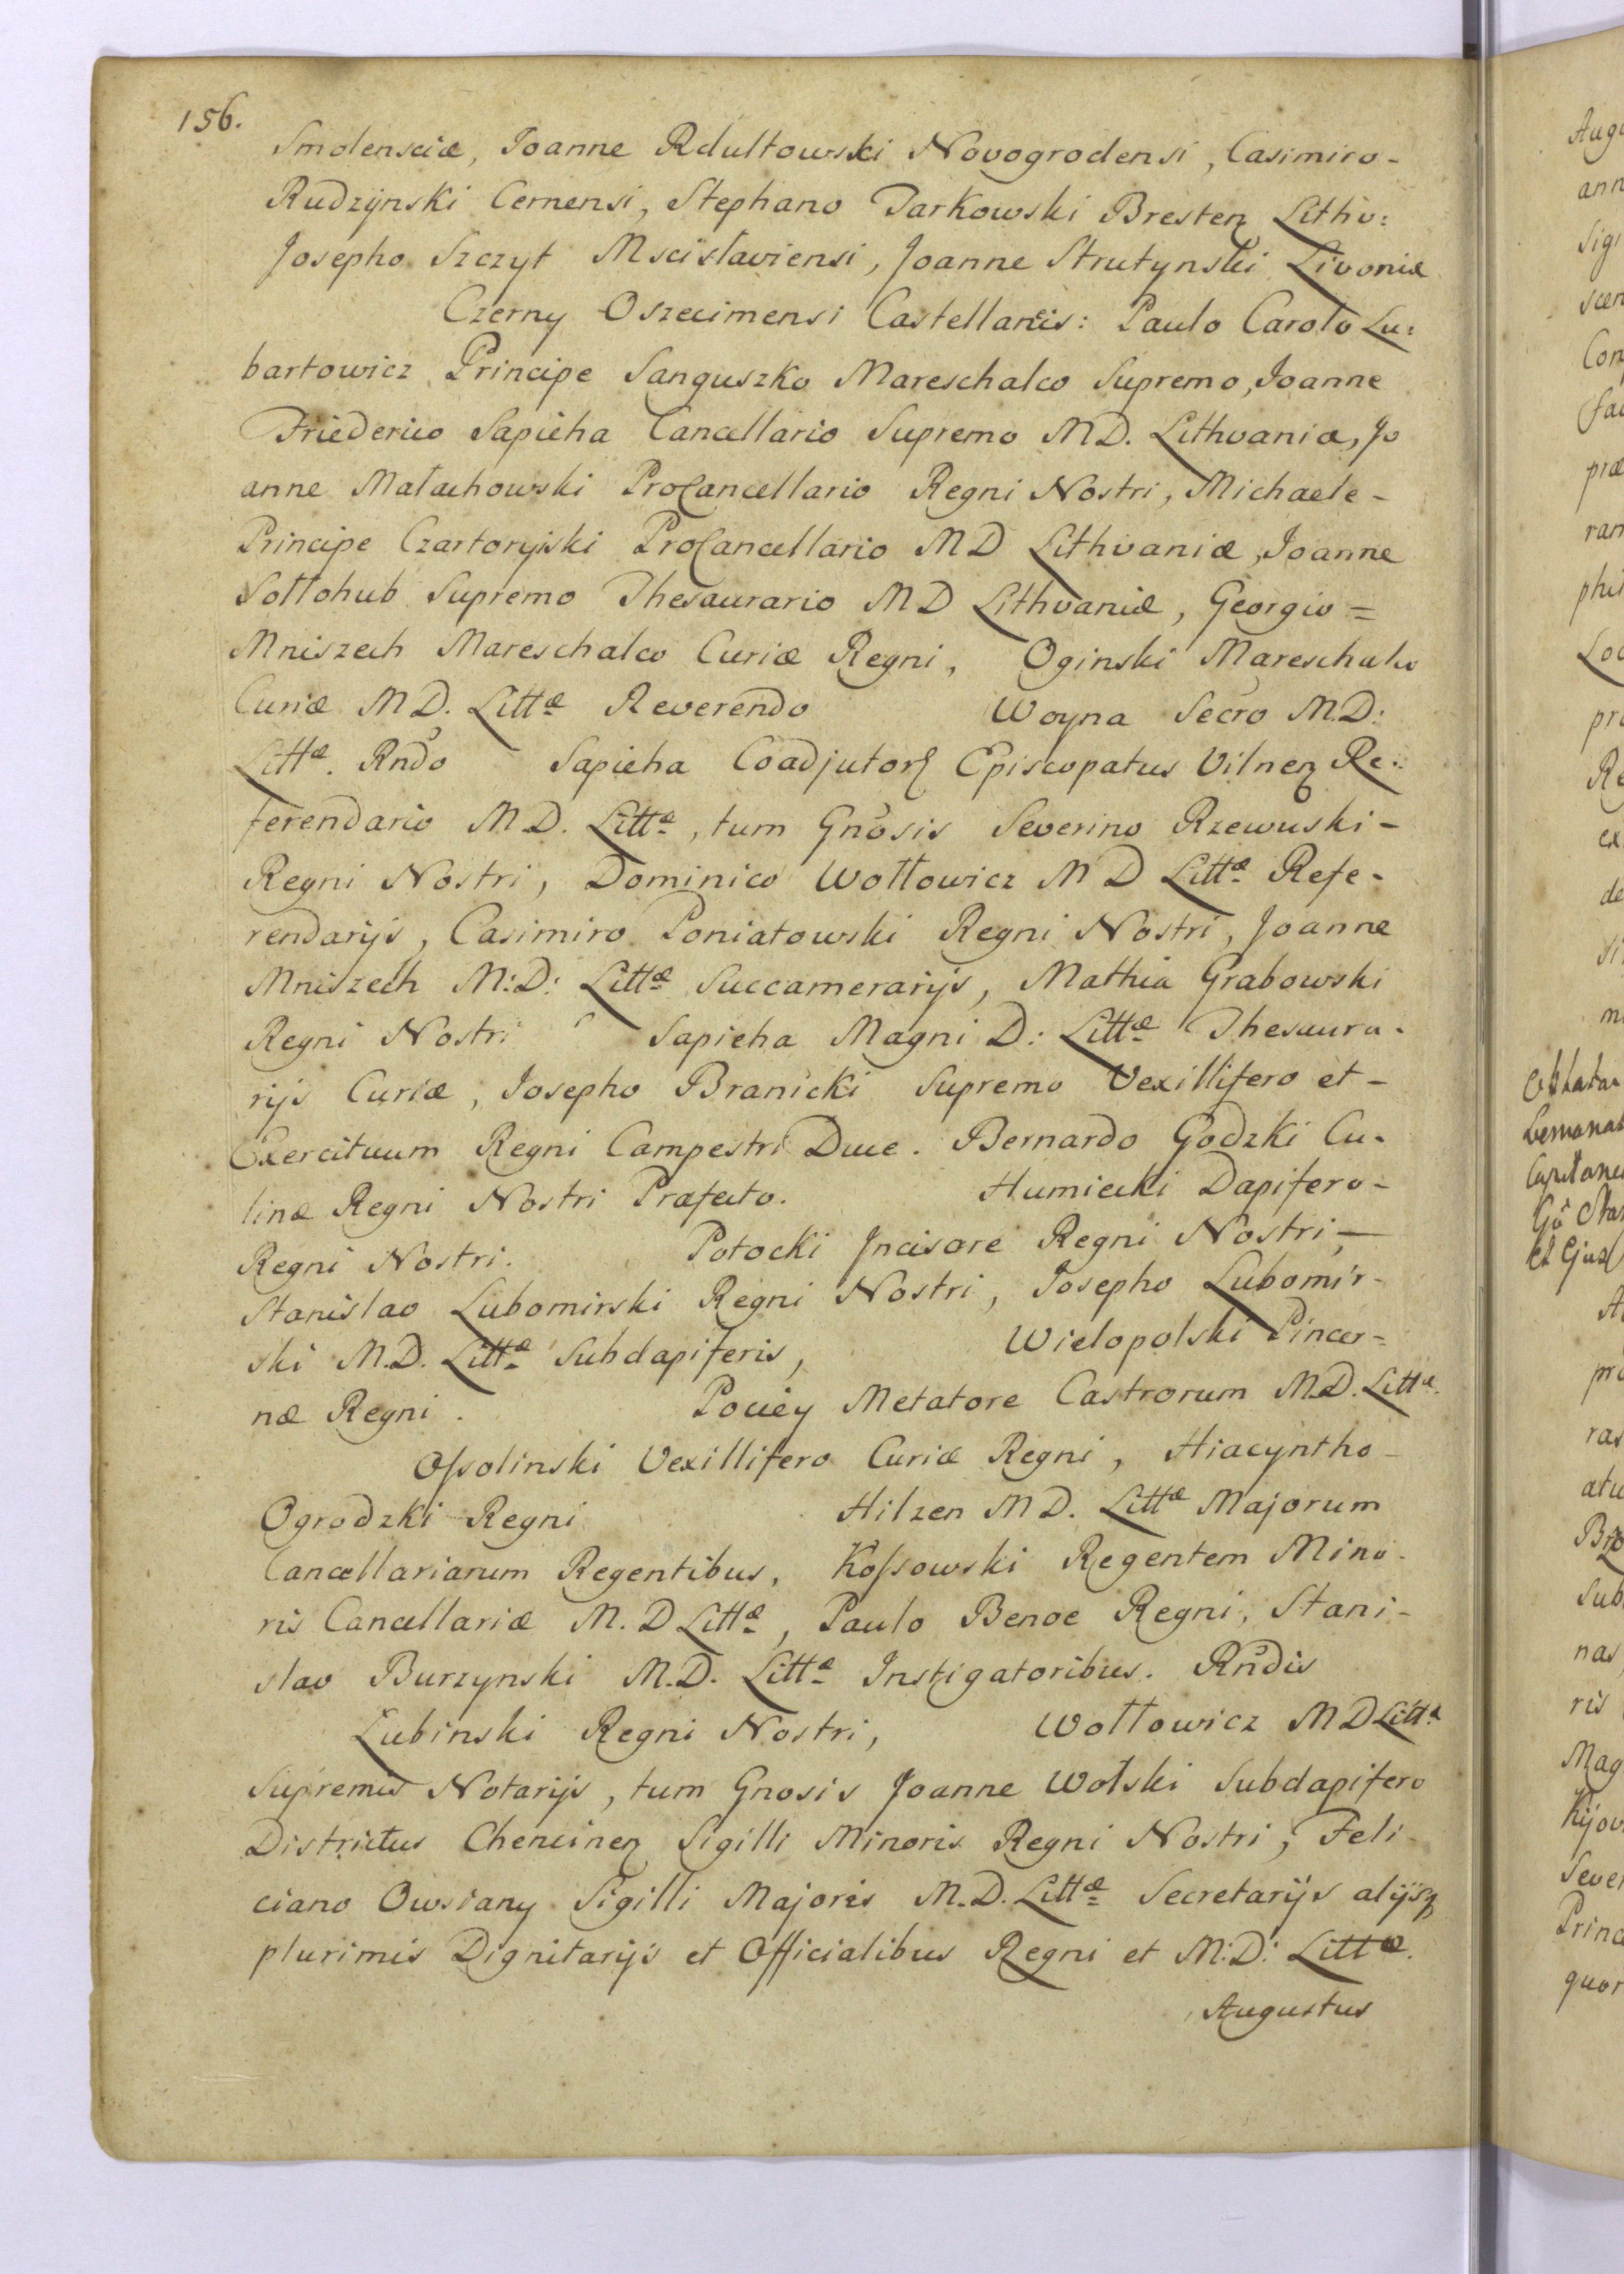 156.
Smolensciæ, Joanne Rdultowski Novogrodensi, Casimiro-
Rudzynski Cernensi, Stephano Tarkowski Bresten Lithv:
Josepho Szczyt Mscislaviensi, Joanne Strutynski Livoniæ
Czerny Oszecimensi Castellaneis: Paulo Carolo Lu:
bartowicz Principe Sanguszko Mareschalco Supremo, Joanne
Friederico Sapieha Cancellario Supremo MD. Lithvaniæ, Jo
anne Małachowski ProCancellario Regni Nostri, Michaele-
Principe Czartoryiski ProCancellario MD Lithvaniæ, Joanne
Sołłohub Supremo Thesaurario MD Lithvaniæ, Georgio=
Mniszech Mareschalco Curiæ Regni, Oginski Mareschalco
Curiæ MD. Littæ Reverendo Woyna Secro M.D:
Littæ. Rndo Sapieha Coadjutorę Episcopatus Vilnen Re:
ferendario MD. Littæ, tum Gnosis Severino Rzewuski-
Regni Nostri, Dominico Wołłowicz MD Littæ Refe-
rendarijs, Casimiro Poniatowski Regni Nostri, Joanne
Mniszech M:D: Littæ Succamerarijs, Mathia Grabowski
Regni Nostri Sapieha Magni D: Littæ Thesaura-
rijs Curiæ, Josepho Branicki Supremo Vexillifero et-
Exercituum Regni Campestri Duce. Bernardo Godzki Cu-
linæ Regni Nostri Præfecto. Humiecki Dapifero-
Regni Nostri. Potocki Incisore Regni Nostri,-
Stanislao Lubomirski Regni Nostri, Josepho Lubomir-
ski M.D. Littæ Subdapiferis, Wielopolski Pincer-
næ Regni. Pociey Metatore Castrorum M.D. Littæ.
Ossolinski Vexillifero Curiæ Regni, Hiacyntho-
Ogrodzki Regni Hilzen MD. Littæ Majorum
Cancellariarum Regentibus, Kossowski Regentem Mino-
ris Cancellariæ M.D Littæ, Paulo Benoe Regni, Stani-
slao Burzynski M.D. Littæ Instigatoribus. Rndis
Lubinski Regni Nostri, Wołłowicz MD Littæ
Supremis Notarijs, tum Gnosis Joanne Wolski Subdapifero
Districtus Chencinen Sigilli Minoris Regni Nostri, Feli-
ciano Owsiany Sigilli Majoris M.D. Littæ Secretarijs alijsq
plurimis Dignitarijs et Officialibus Regni et M:D: Littæ.
Augustus